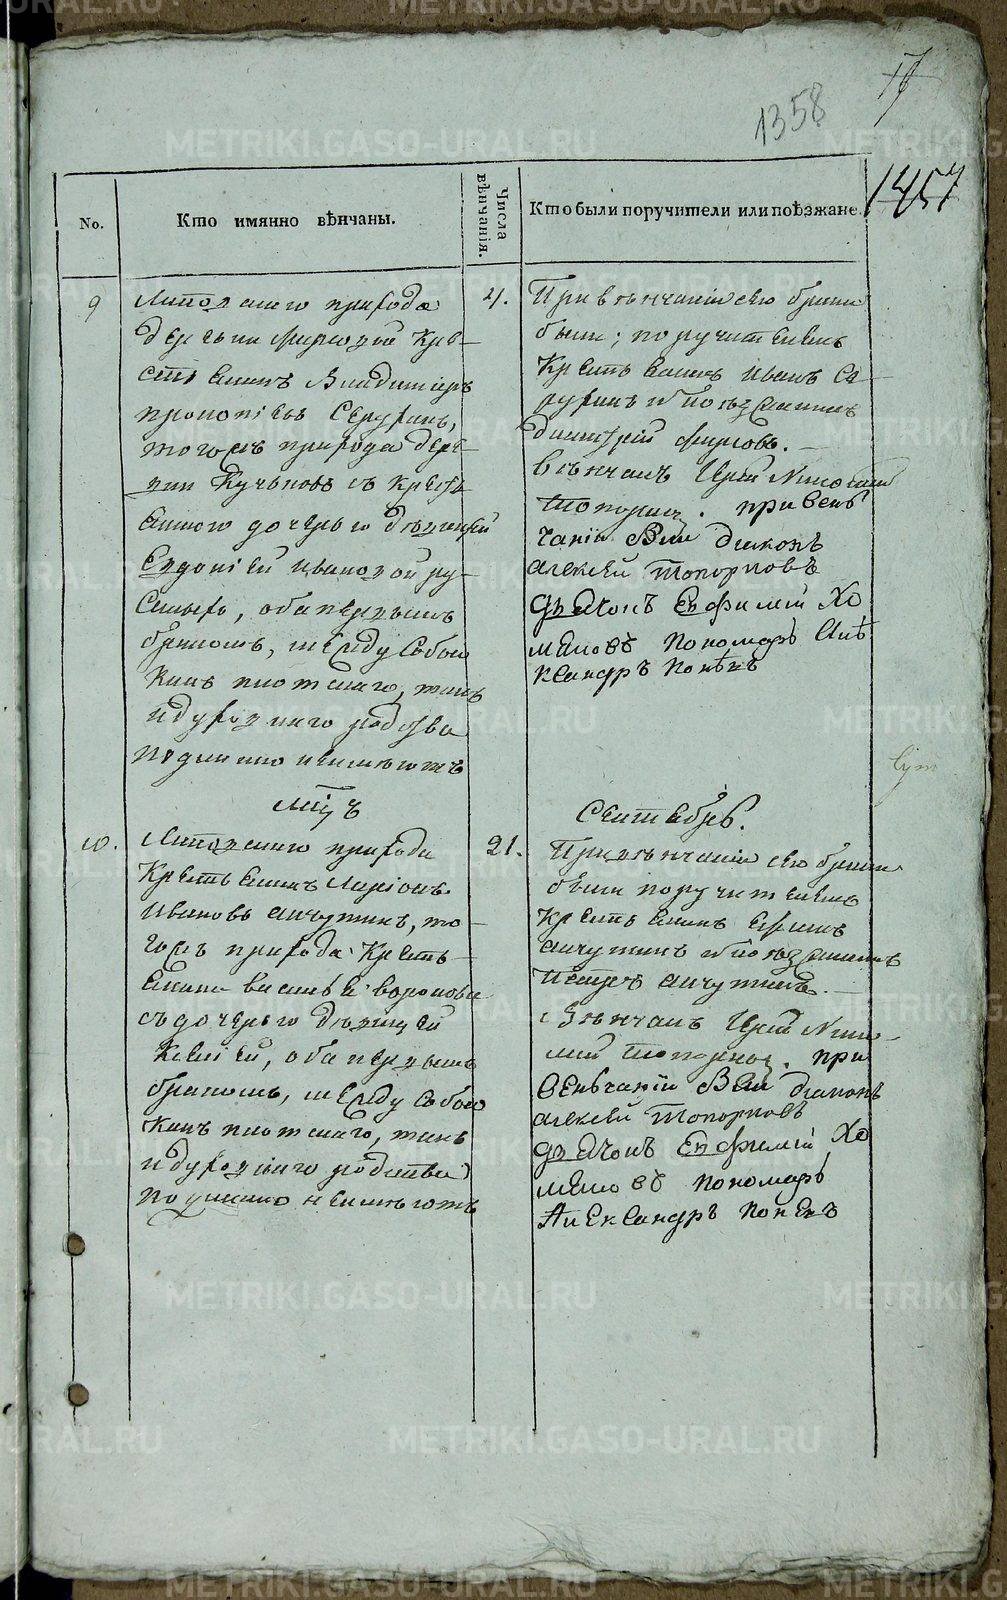 17
1358
1457
No.
Кто имянно вѣнчаны.
Числа вѣнчанія.
Кто были поручители или поѣзжане.
9
прихода
деревни Кре-
стьянинъ Владимiръ
Прокопьевъ Серугинъ,
тогожъ прихода дере-
вни Кучковъ съ Кресть
янскою дочерью дѣвицей
Евдокiей Ивановой
оба первымъ
бракомъ, между собою
какъ плотскаго, такъ
и духовнаго родства
подлинно неимѣютъ
4.
При вѣнчанiи сею браки
были; поручителемъ
Крестьянинъ Иванъ Се
ругинъ и поѣзжанинъ
Дмитрiй Фирсовъ.
вѣнчалъ Iерей Николай
Топорковъ. при вень
чанiи были диаконъ
Алексей Топорковъ
дьячокъ Евфимiй Хо
мяковъ пономарь Але
ксандръ Поповъ
Сентябрь.
10.
прихода
Крестьянинъ Ларiонъ
Ивановъ Анчугинъ, то-
гожъ прихода Кресть-
янина Василья Воронова
съ дочерью дѣвицей
Ксенiей, оба первымъ
бракомъ, между собою
какъ плотскаго, такъ
и духовнаго родства
подлинно неимѣютъ
21.
При вѣнчанiи сею браки
были поручителемъ
Крестьянинъ Ефимъ
Анчугинъ и поѣзжанинъ
Петръ Анчугинъ.
вѣнчалъ Iерей Нико-
лай Топорковъ. при
веньчанiи были диаконъ
Алексей Топорковъ
дьячокъ Евфимiй Хо
мяковъ пономарь
Александръ Поповъ
METRIKI.GASO-URAL.RU